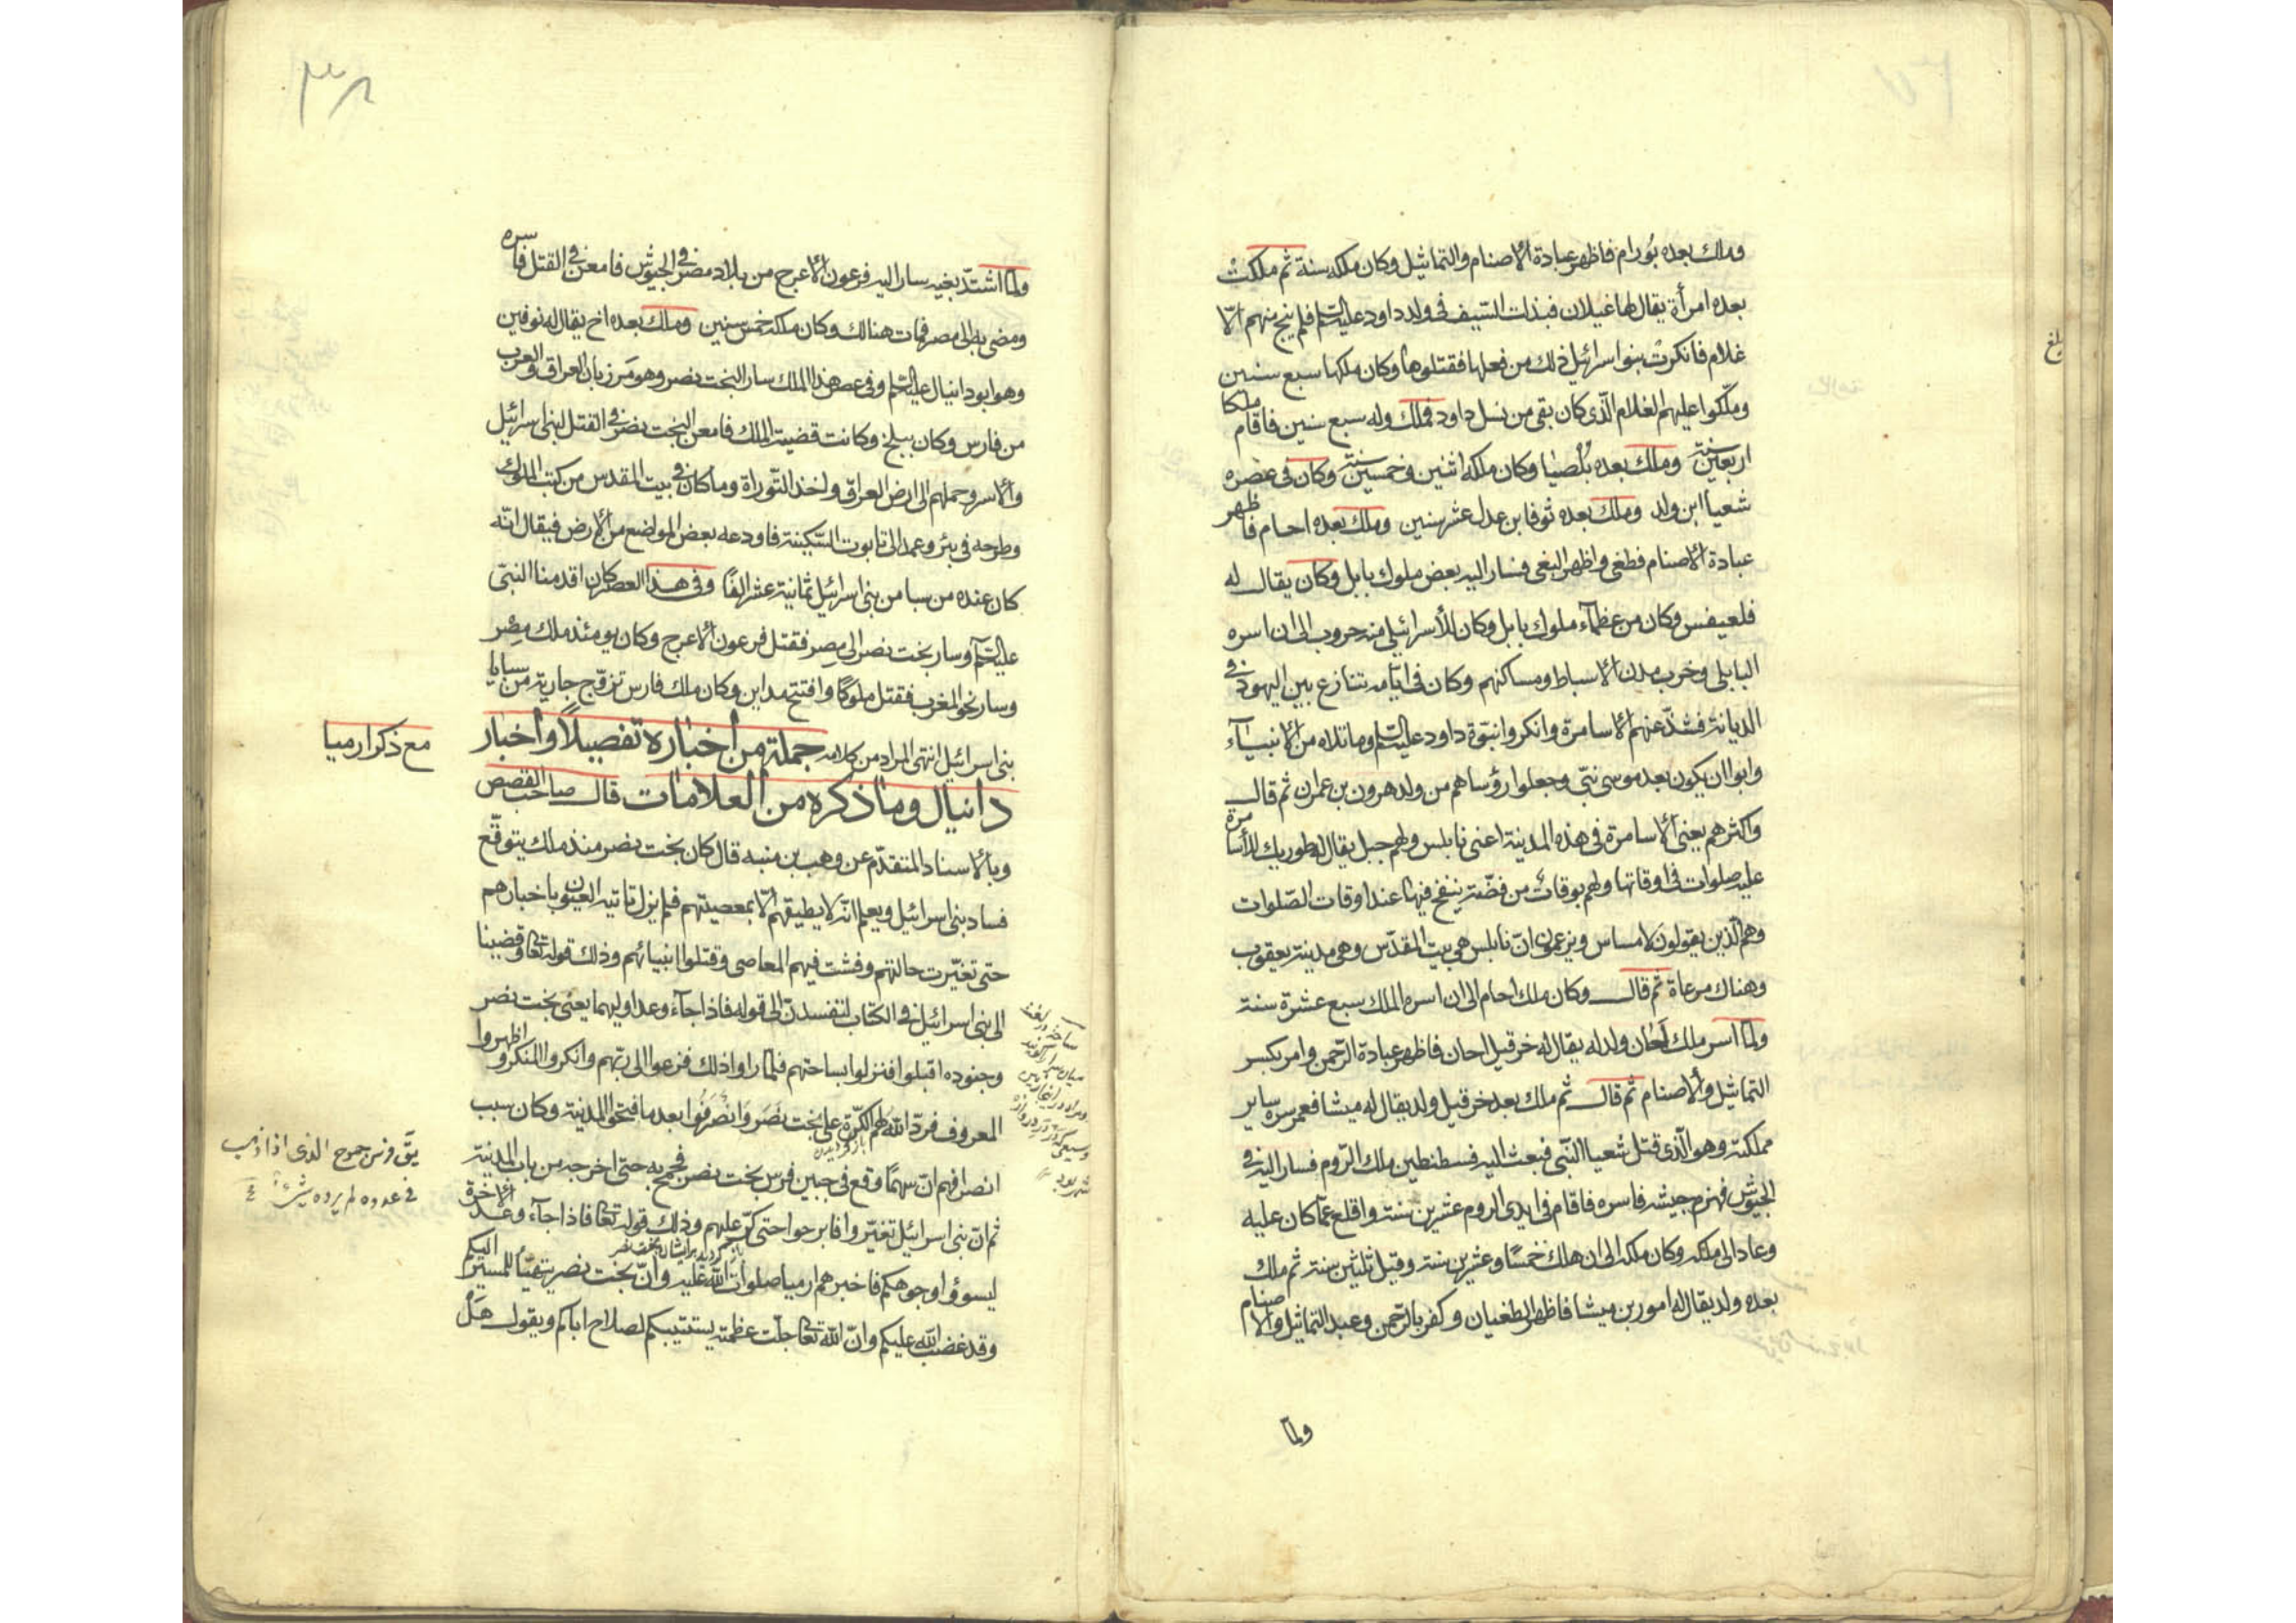 وملك بعده بُورام فاظهر عبادة الاصنام والتماثيل وكان ملكه سنة ثم ملكتْ
بعده امرأة يقال لها غيلان فبذات السّيف فى ولد داود عليه السّلم فلم ينج منهم الّا
غلام فانكرتْ بنو اسرائيل ذلك من فعلها فقتلوها وكان ملكها سبع سنين
وملّكوا عليهم الغلام الّذى كان بقى من نسل داود فملك وله سبع سنين فاقام ملكا
اربعين سنة وملك بعده بلْصيا وكان ملكه اثنين و خمسين سنة وكان فى عصره
شعيا ابن ولد وملك بعده ثوفا بن عدل عشر سنين وملك بعده احام فاظهر
عبادة الاصنام فطغى واظهر البغى فسار اليه بعض ملوك بابل وكان يقال له
فلعيفس وكان من عظمآء ملوك بابل وكان للأسرائيلى منه حروب الى ان اسره
البابلى وخرب مدن الاسباط ومساكنهم وكان فى ايّامه تنازع بين اليهود فى
الديانة فشذّ عنهم الاسامرة وانكروا نبوّة داود عليه السّلم وما تلاه من الانبيآء
وابوا ان يكون بعد موسى نبّى وجعلوا رؤساهم من ولد هرون بن عمران ثم قال
واكثرهم يعنى الاسامرة فى هذه المدينة اعنى نابلس ولهم جبل يقال له طوريك للأسامرة
عليه صلوات فى اوقاتها ولهم بوقات من فضّة ينفخ فيها عند اوقات الصّلوات
وهم الّذين يقولون لامساس ويزعمون انّ نابلس هى بيت المقدّس وهى مدينة يعقوب
وهناك مرعاة ثم قال وكان ملك احام الى ان اسره الملك سبع عشرة سنة
ولمّا اسر ملك احان ولد له يقال له خرقيل احان فاظهر عبادة الرّحمن وامر بكسر
التماثيل والاصنام ثم قال ثم ملك بعد خرقيل ولد يقال له ميشا فعم سرّه ساير
مملكته وهو الّذى قتل شعيا النّبى فبعث اليه قسطنطين ملك الرّوم فسار اليه فى
الجيوش فهزم جيشه فاسره فاقام فى ايدى الروم عشرين سنة واقلع عمّا كان عليه
وعاد الى ملكه وكان ملكه الى ان هلك خمسًا وعشرين سنة وقيل ثلثين سنة ثم ملك
بعده ولد يقال له امور بن ميشا فاظهر الطغيان وكفر بالرّحمن وعبد التماثيل والاصنام
ولمّا
بلغ
٣٨
ولمّا اشتدّ بغيه سار اليه فرعون الاعرج من بلاد مصر فى الجيوش فامعن فى القتل فاسره
ومضى به الى مصر فمات هنالك وكان ملكه خمس سنين وملك بعده اخ يقال له نوفين
وهو ابو دانيال عليه السّلم وفى عصر هذا الملك سار البخت نصر وهو مَرزبان العراق والعرب
من فارس وكان ببلخ وكانت قضية الملك فامعن البخت نصر فى القتل لبنى اسرائيل
والاسر وحملهم الى ارض العراق واخذ التّوراة وما كان فى بيت المقدس من كتب الملوك
وطرحه فى بئر وعمد الى تابوت السّكينة فاودعه بعض المواضع من الارض فيقال انّه
كان عنده من سبا من بنى اسرائيل ثمانية عشر الفًا وفى هذا العصر كان اقدمنا النبىّ
عليه السّلم وسار بخت نصر الى مصر فقتل فرعون الاعرج وكان يومئذ ملك مِصْر
وسار نحو المغرب فقتل ملوكًا وافتتح مداين وكان ملك فارس تزوّج جارية من سبايا
بنى اسرائيل انتهى المراد من كلامه جملة من اخباره تفصيلاً واخبار
مع ذكر ارميا
دانيال وما ذكره من العلامات قال صاحب القصص
وبالاسناد المتقدّم عن وهب بن منبه قال كان بخت نصر منذ ملك يتوقّع
فساد بنى اسرائيل ويعلم انّه لا يطيقهم الّا بمعصيتهم فلم يزل تاتيه العيون باخبارهم
حتى تغيّرت حالتهم وفشت فيهم المعاصى وقتلوا انبيائهم وذلك قوله تعالى وقضينا
الى بنى اسرائيل فى الكتاب لتفسدنّ الى قوله فاذا جآء وعد اوليهما يعنى بخت نصر
وجنوده اقبلوا فنزلوا بساحتهم فلمّا راوا ذلك فزعوا الى ربّهم وانكروا المنكر واظهروا
المعروف فردّ الله لهم الكرّة على بخت نَصَر وَانْصَرَفُوا بعد ما فتحوا المدينة وكان سبب
انصرافهم انّ سهمًا وقع فى جبين فرس بخت نصر فجمح به حتى اخرجه من باب المدينة
ثم انّ بنى اسرائيل تغيّروا فابرحوا حتى كرّ عليهم وذلك قوله تعالى فاذا جآء وعد الاخرة
ليسوؤا وجوهكم فاخبرهم ارميا صلوات الله عليه وانّ بخت نصر يتهيّأ للمسير اليكم
وقد غضب الله عليكم وانّ الله تعالى جلّت عظمته يستتيبكم لصلاح اباكم ويقول هَل
فرس جموح الذى اذا ذهب
فى عدوه لم يرده شئ